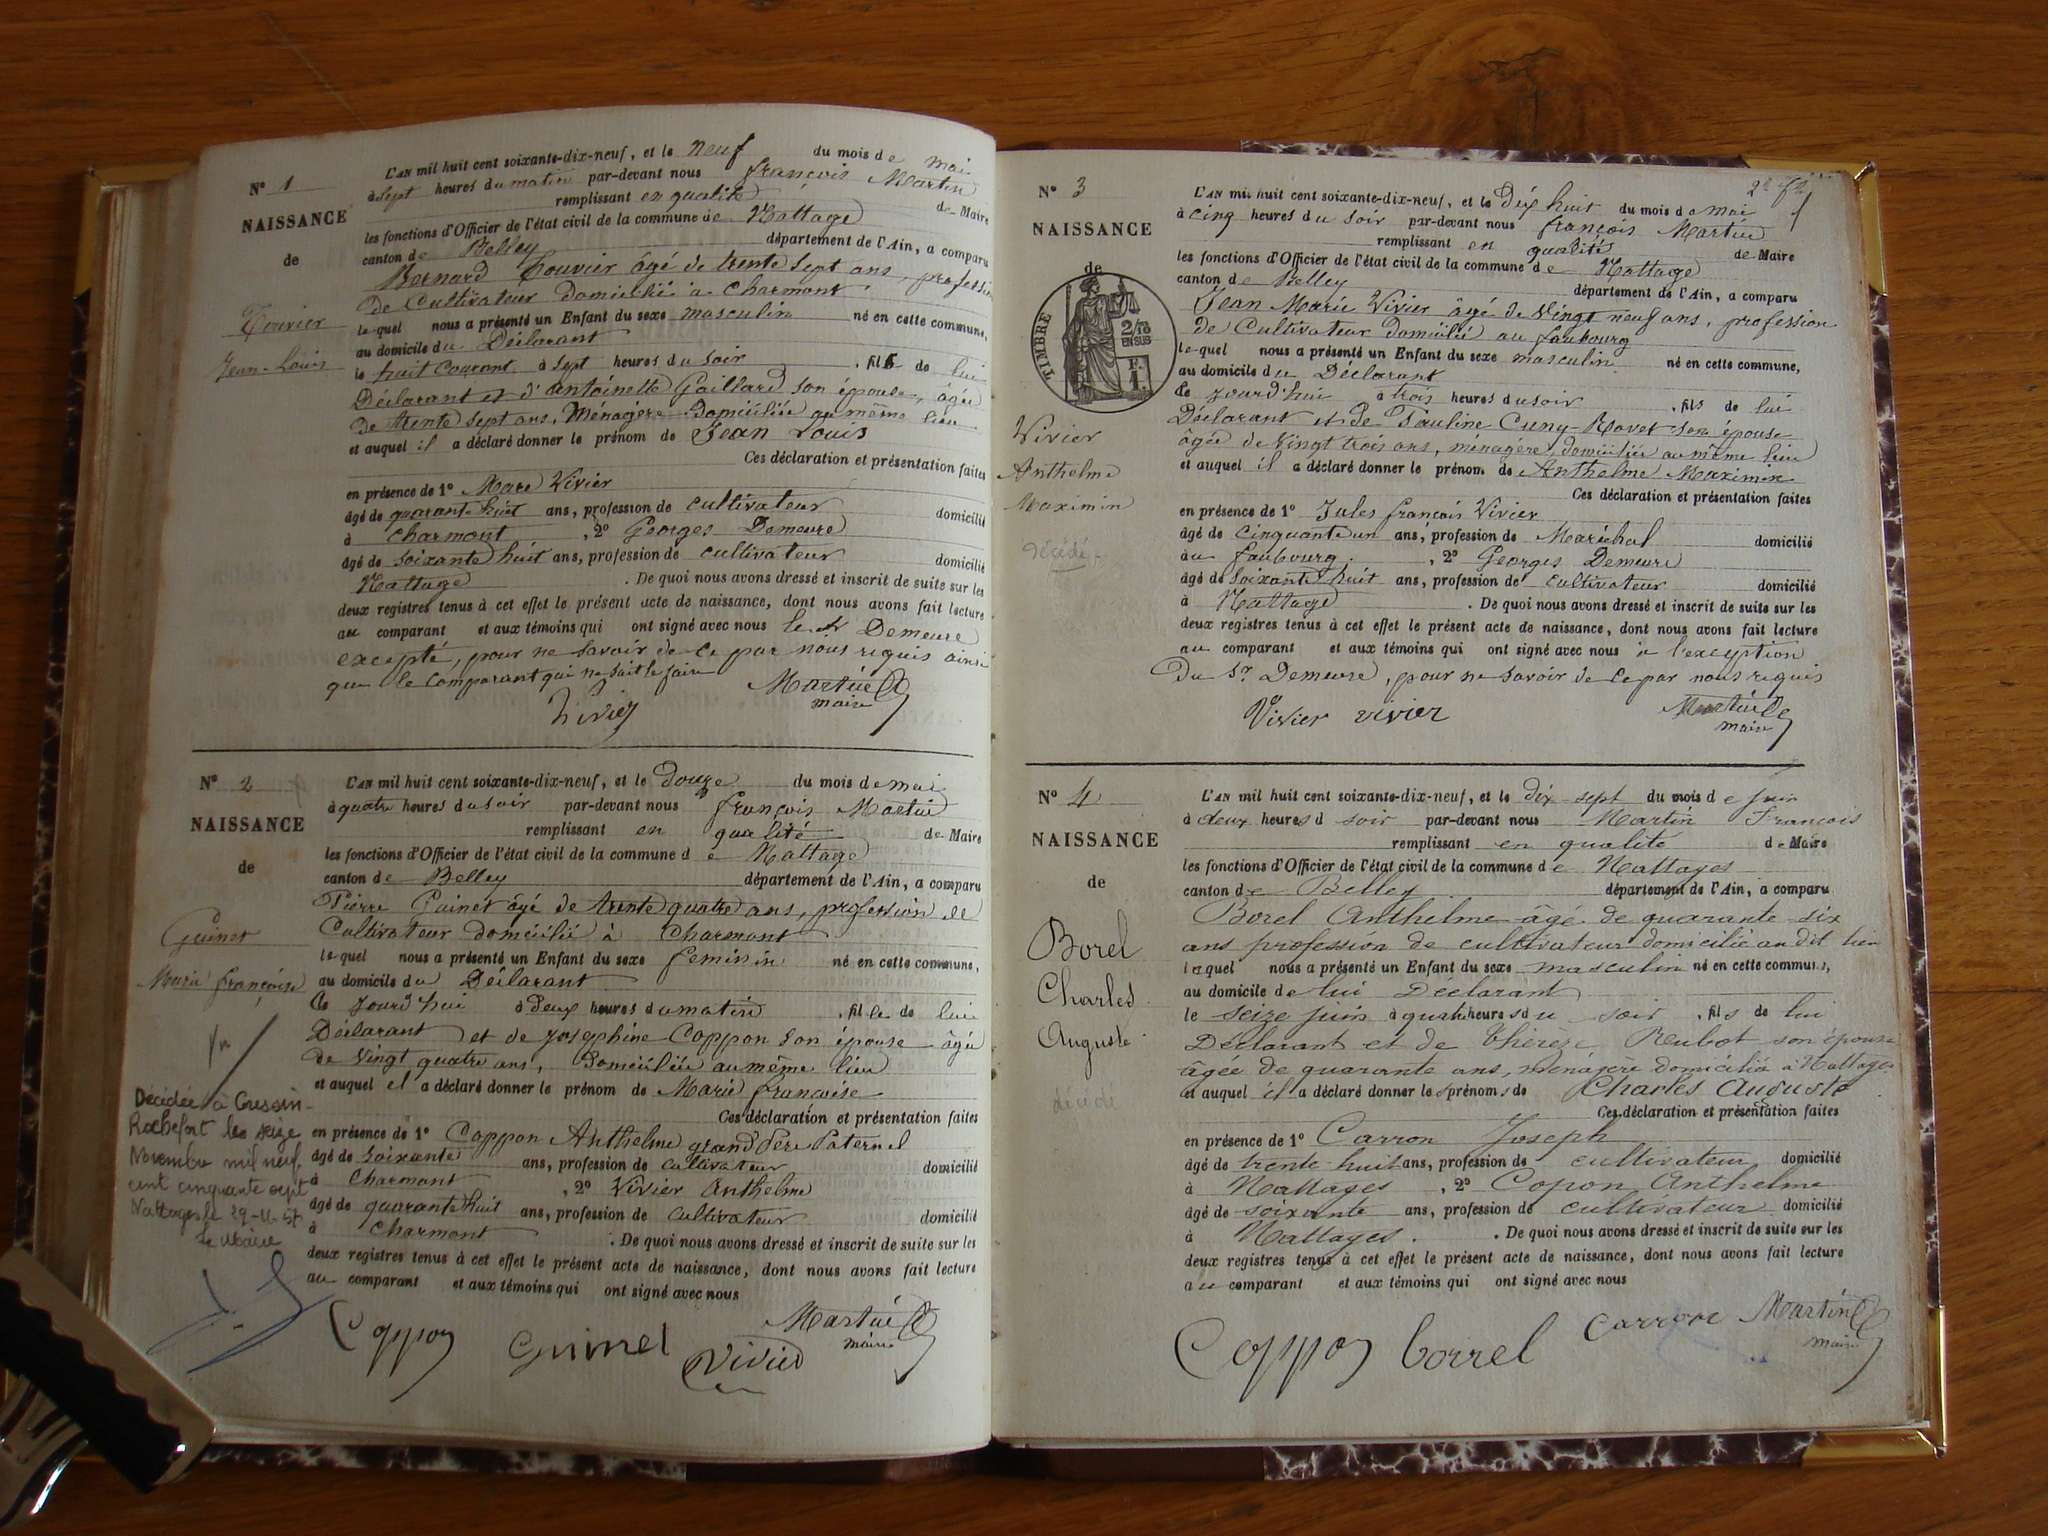 N° 1
NAISSANCE
de
Touvier
Jean-Louis
L'AN mil huit cent soixante-dix-neuf, et le neuf du mois de mai
à sept heures du matin par-devant nous françois Martin
remplissant en qualité de Maire
les fonctions d'Officier de l'état civil de la commune de Nattage
canton de Belley département de l'Ain, a comparu
Bernard Touvier âgé de trente sept ans, profession
de Cultivateur domicilié à Charmont
lequel nous a présenté un Enfant du sexe masculin né en cette commune,
au domicile du Déclarant
le huit courant à sept heures du soir , fils de lui
Déclarant et d'antoinette Gaillard son épouse, âgée
de trente sept ans, Ménagère domiciliée au même lieu
et auquel il a déclaré donner le prénom de Jean Louis
Ces déclaration et présentation faites
en présence de 1° Marc Vivier
âgé de quarante huit ans, profession de cultivateur domicilié
à Charmont , 2° Georges Demeure
âgé de soixante huit ans, profession de cultivateur domicilié
Nattage . De quoi nous avons dressé et inscrit de suite sur les
deux registres tenus à cet effet le présent acte de naissance, dont nous avons fait lecture
au comparant et aux témoins qui ont signé avec nous le Sr Demeure
excepté, pour ne savoir de ce par nous requis ainsi
que le comparant qui ne sait le faire
Vivier Martin
maire
N° 2
NAISSANCE
de
Guinet
Marie françoise
Décédée à Cressin-
Rochefort le seize
Novembre mil neuf
cent cinquante sept
Nattages le 29-11-57
Le Maire
L'AN mil huit cent soixante-dix-neuf, et le douze du mois de mai
à quatre heures du soir par-devant nous françois Martin
remplissant en qualité de Maire
les fonctions d'Officier de l'état civil de la commune de Nattage
canton de Belley département de l'Ain, a comparu
Pierre Guinet âgé de trente quatre ans, profession de
Cultivateur domicilié à Charmont
lequel nous a présenté un Enfant du sexe feminin né en cette commune,
au domicile du Déclarant
le jourd'hui à deux heures du matin , fille de lui
Déclarant et de Joséphine Coppon son épouse âgée
de vingt quatre ans, Domiciliée au même lieu
et auquel il a déclaré donner le prénom de Marie françoise
Ces déclaration et présentation faites
en présence de 1° Coppon Anthelme grand Père Paternel
âgé de soixante ans, profession de cultivateur domicilié
à Charmont , 2° Vivier Anthelme
âgé de quarante huit ans, profession de cultivateur domicilié
à Charmont . De quoi nous avons dressé et inscrit de suite sur les
deux registres tenus à cet effet le présent acte de naissance, dont nous avons fait lecture
au comparant et aux témoins qui ont signé avec nous
Coppon Guinet Vivier Martin
maire
N° 3
NAISSANCE
de
TIMBRE
2/10
EN SUS
F.
1.
Vivier
Anthelme
Maximin
décédé
L'AN mil huit cent soixante-dix-neuf, et le dix huit du mois de mai
à cinq heures du soir par-devant nous françois Martin
remplissant en qualités de Maire
les fonctions d'Officier de l'état civil de la commune de Nattage
canton de Belley département de l'Ain, a comparu
Jean Marie Vivier âgé de Vingt neuf ans, profession
de Cultivateur domicilié au faubourg
lequel nous a présenté un Enfant du sexe masculin né en cette commune,
au domicile du Déclarant
le jourd'hui à trois heures du soir , fils de lui
Déclarant et de Pauline Cuny-Ravet son épouse
âgée de vingt trois ans, ménagère, domiciliée au même lieu
et auquel il a déclaré donner le prénom de Anthelme Maximin
Ces déclaration et présentation faites
en présence de 1° Jules françois Vivier
âgé de cinquante un ans, profession de Maréchal domicilié
au faubourg , 2° Georges Demeure
âgé de soixante huit ans, profession de cultivateur domicilié
à Nattage . De quoi nous avons dressé et inscrit de suite sur les
deux registres tenus à cet effet le présent acte de naissance, dont nous avons fait lecture
au comparant et aux témoins qui ont signé avec nous à l'exception
Du Sr Demeure, pour ne savoir de ce par nous requis
Vivier vivier Martin
maire
N° 4
NAISSANCE
de
Borel
Charles
Auguste
décédé
L'AN mil huit cent soixante-dix-neuf, et le dix-sept du mois de juin
à deux heures d soir par-devant nous Martin François
remplissant en qualité de Maire
les fonctions d'Officier de l'état civil de la commune de Nattages
canton de Belley département de l'Ain, a comparu
Borel Anthelme âgé de quarante-six
ans profession de cultivateur domicilié au dit lieu
lequel nous a présenté un Enfant du sexe masculin né en cette commune,
au domicile de lui Déclarant
le seize juin à quatre heures du soir , fils de lui
Déclarant et de Thérèse Reubot son épouse
âgée de quarante ans, ménagère domiciliée à Nattages
et auquel il a déclaré donner les prénoms de Charles Auguste
Ces déclaration et présentation faites
en présence de 1° Carron Joseph
âgé de trente-huit ans, profession de cultivateur domicilié
à Nattages , 2° Copon Anthelme
âgé de soixante ans, profession de cultivateur domicilié
à Nattages . De quoi nous avons dressé et inscrit de suite sur les
deux registres tenus à cet effet le présent acte de naissance, dont nous avons fait lecture
au comparant et aux témoins qui ont signé avec nous
Coppon borrel Carron Martin
maire